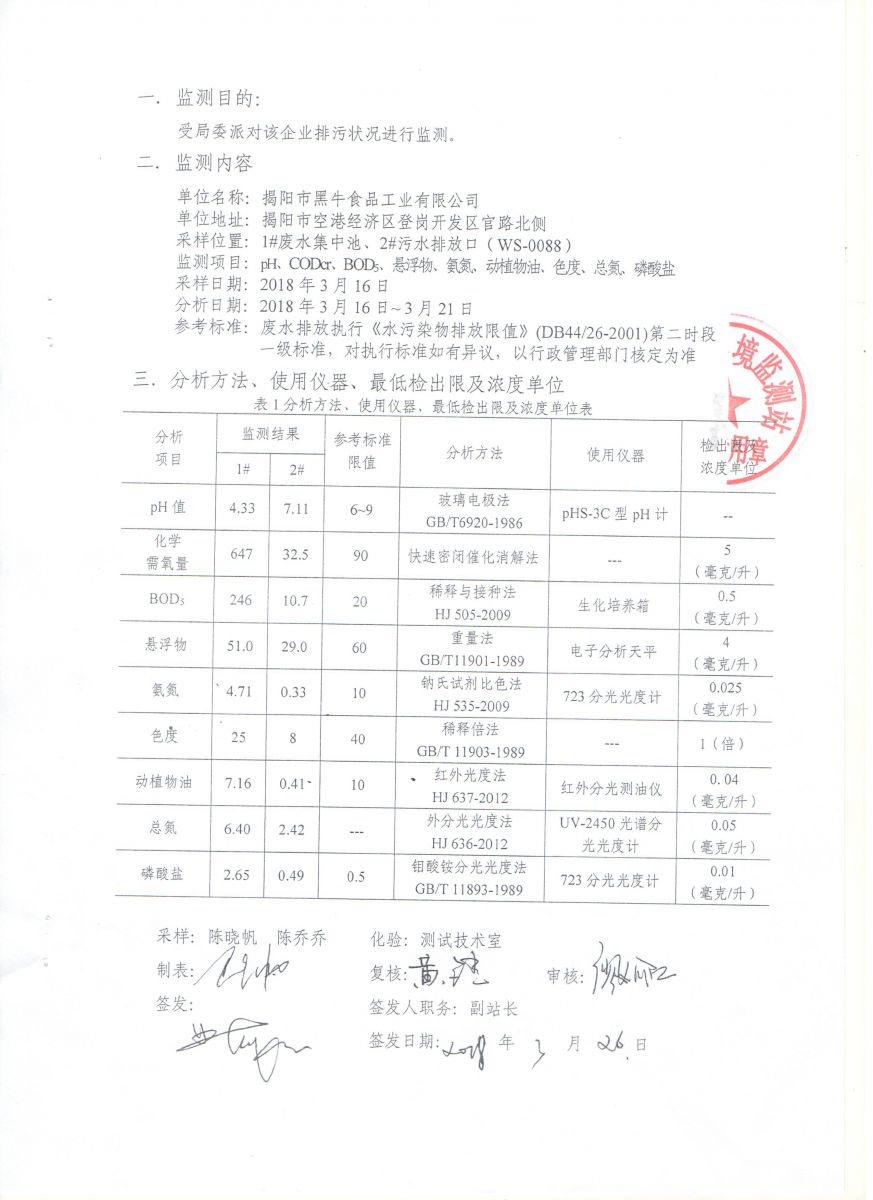 一. 监测目的：
受局委派对该企业排污状况进行监测。
二. 监测内容
单位名称：揭阳市黑牛食品工业有限公司
单位地址：揭阳市空港经济区登岗开发区官路北侧
采样位置：1#废水集中池、2#污水排放口（WS-0088）
监测项目：pH、CODcr、BOD₅、悬浮物、氨氮、动植物油、色度、总氮、磷酸盐
采样日期：2018 年 3 月 16 日
分析日期：2018 年 3 月 16 日~3 月 21 日
参考标准：废水排放执行《水污染物排放限值》(DB44/26-2001)第二时段
一级标准，对执行标准如有异议，以行政管理部门核定为准
境监测站
用章
三. 分析方法、使用仪器、最低检出限及浓度单位
表 1 分析方法、使用仪器、最低检出限及浓度单位表
分析项目 监测结果 参考标准限值 分析方法 使用仪器 检出限及浓度单位
1# 2#
pH 值 4.33 7.11 6~9 玻璃电极法 GB/T6920-1986 pHS-3C 型 pH 计 --
化学需氧量 647 32.5 90 快速密闭催化消解法 --- 5（毫克/升）
BOD₅ 246 10.7 20 稀释与接种法 HJ 505-2009 生化培养箱 0.5（毫克/升）
悬浮物 51.0 29.0 60 重量法 GB/T11901-1989 电子分析天平 4（毫克/升）
氨氮 4.71 0.33 10 钠氏试剂比色法 HJ 535-2009 723 分光光度计 0.025（毫克/升）
色度 25 8 40 稀释倍法 GB/T 11903-1989 --- 1（倍）
动植物油 7.16 0.41 10 红外光度法 HJ 637-2012 红外分光测油仪 0.04（毫克/升）
总氮 6.40 2.42 --- 外分光光度法 HJ 636-2012 UV-2450 光谱分光光度计 0.05（毫克/升）
磷酸盐 2.65 0.49 0.5 钼酸铵分光光度法 GB/T 11893-1989 723 分光光度计 0.01（毫克/升）
采样：陈晓帆 陈乔乔 化验：测试技术室
制表： 复核：黄 审核：
签发： 签发人职务：副站长
签发日期：2018 年 3 月 26 日